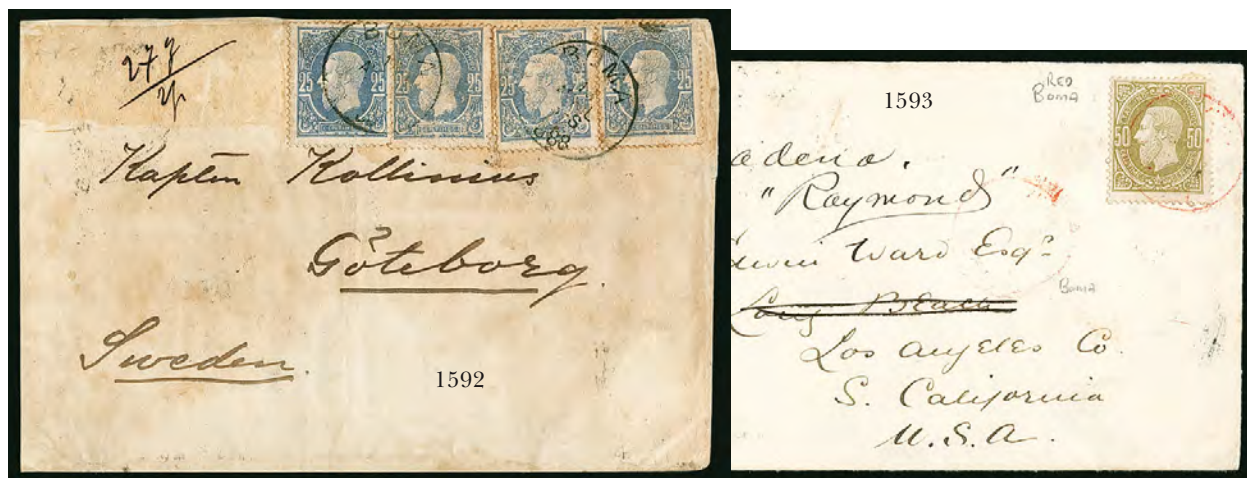 27 g
25 25 25 25 25 25 25 25
BOMA
BOMA
1888
Kaptēn Kollinius
Göteborg.
Sweden.
1592
1593
RED
Boma
50 50
adena.
"Raymond"
dwin Ward Esqr.
Boma
Long Beach
Los Angeles Co.
S. California
U.S.A.